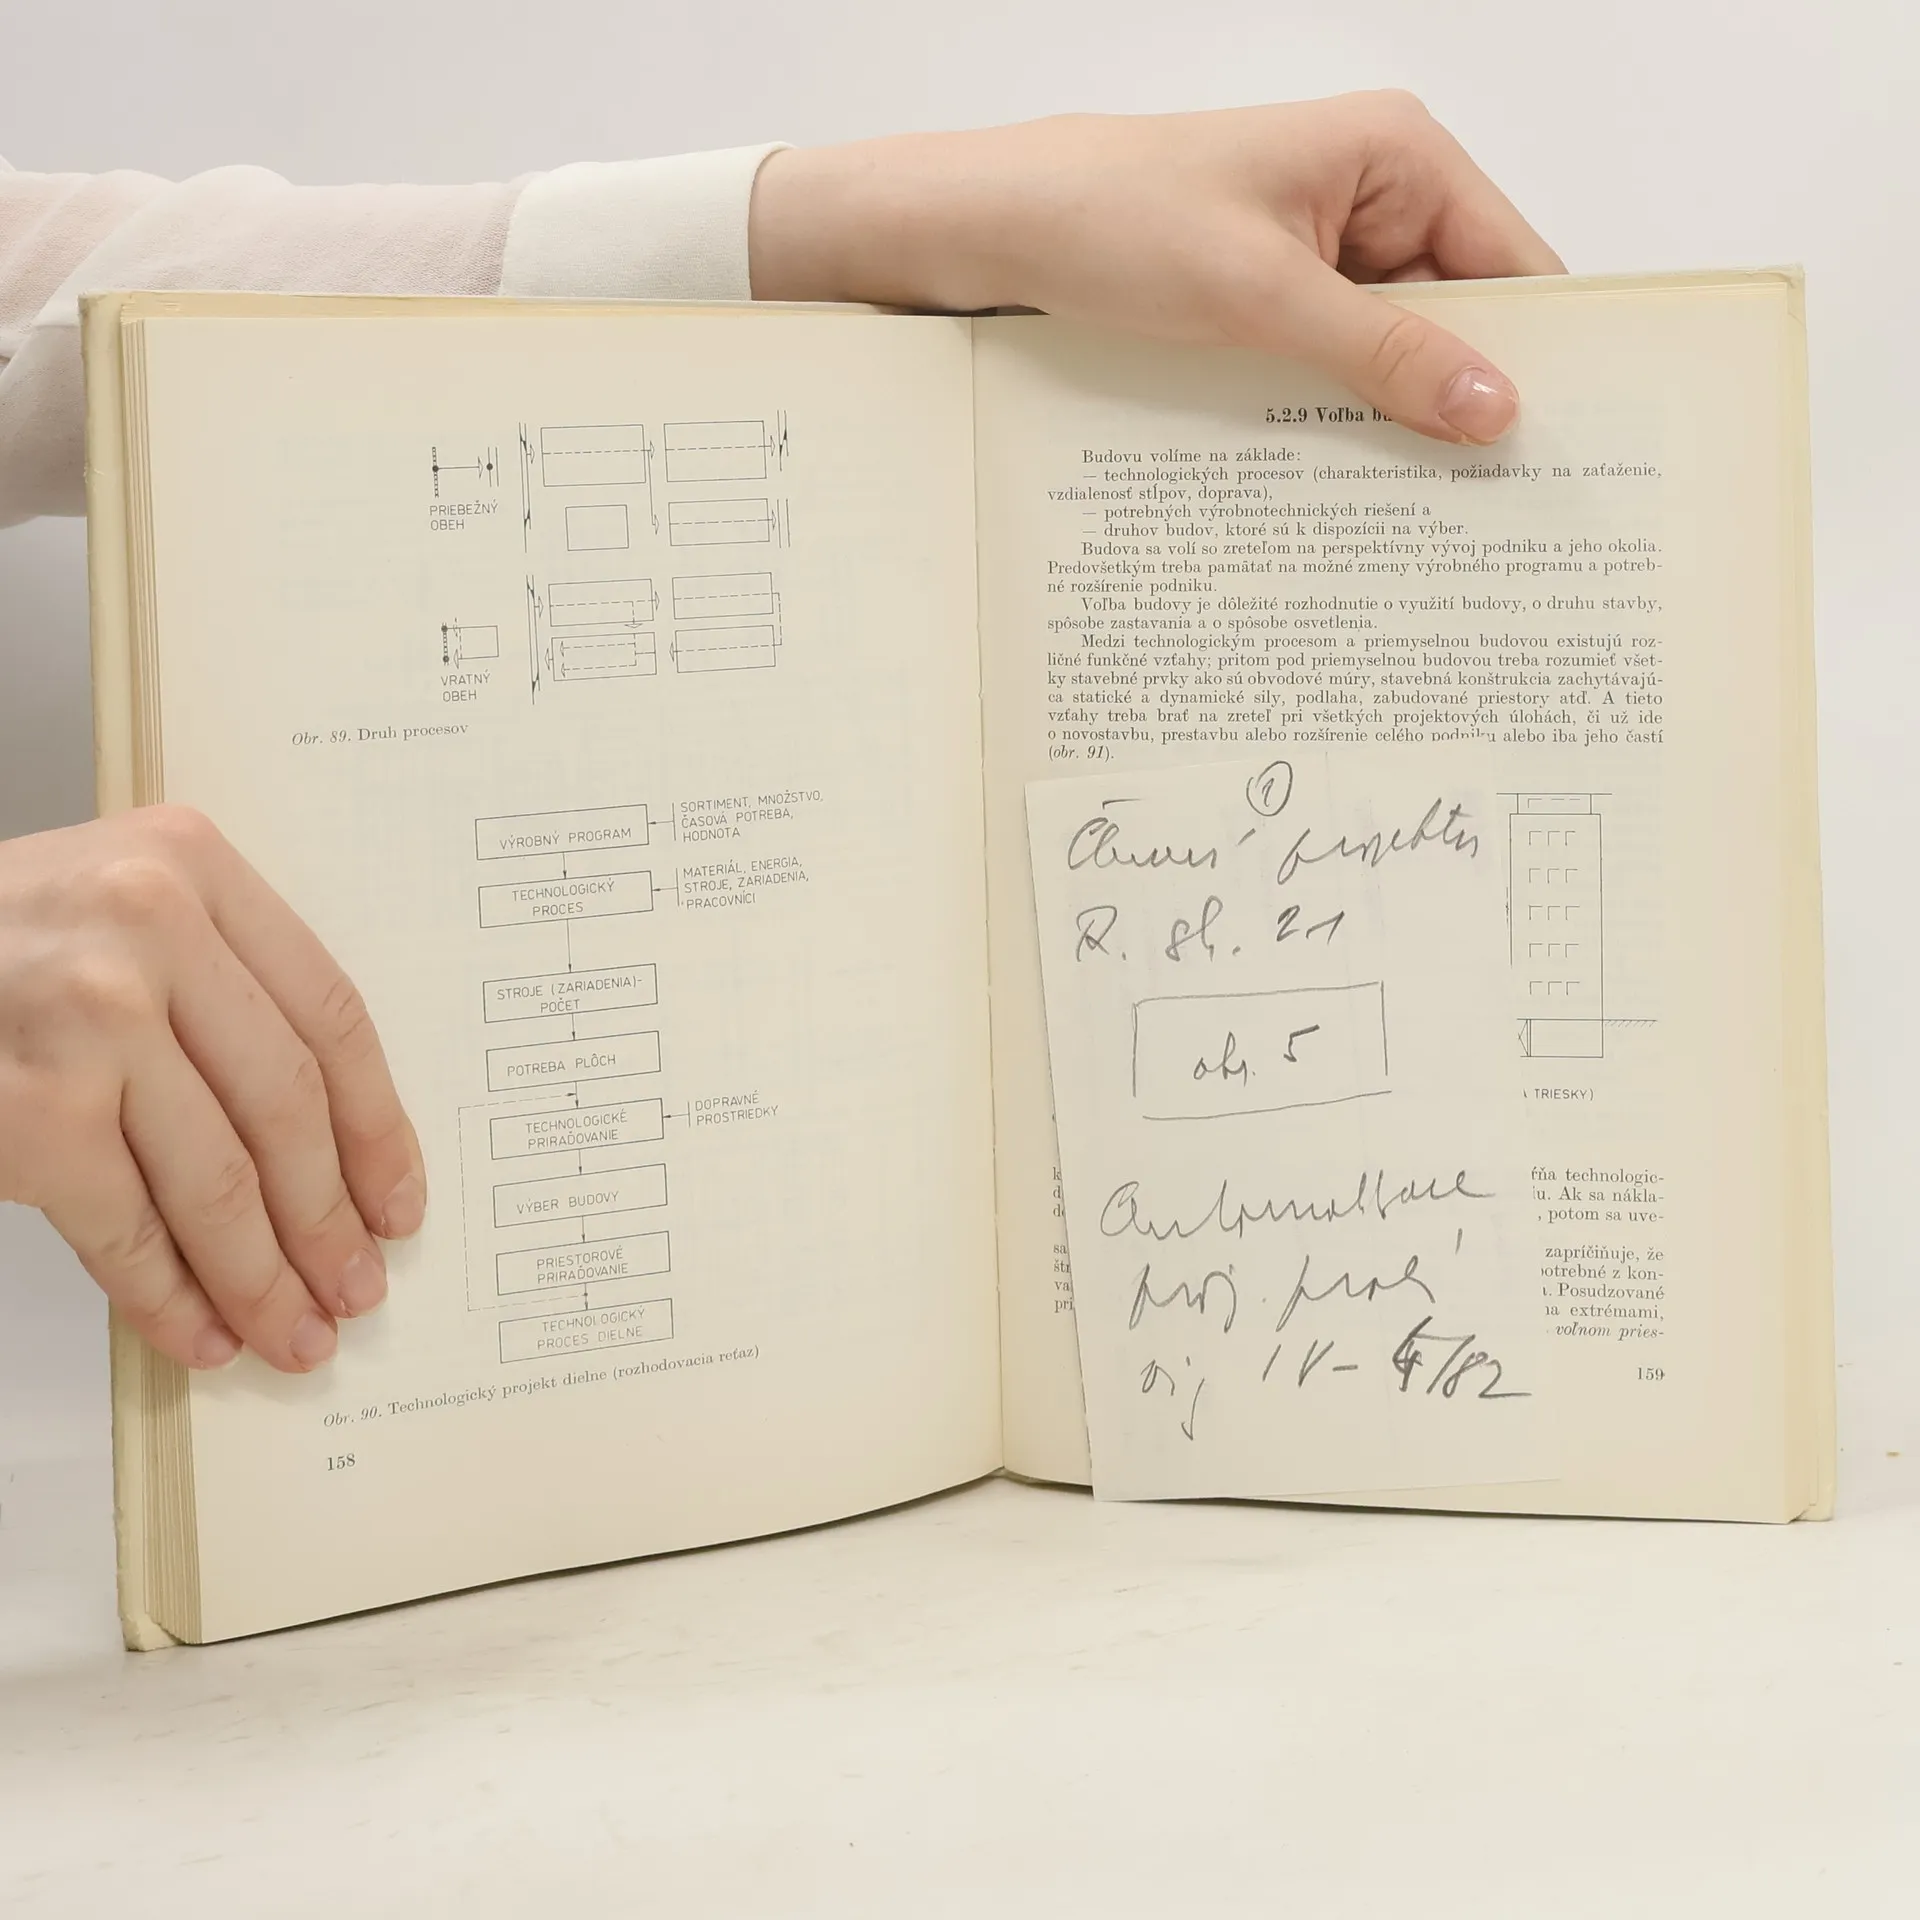 PRIEBEŽNÝ
OBEH
VRATNÝ
OBEH
Obr. 89. Druh procesov
VÝROBNÝ PROGRAM
SORTIMENT, MNOŽSTVO,
ČASOVÁ POTREBA,
HODNOTA
TECHNOLOGICKÝ
PROCES
MATERIÁL, ENERGIA,
STROJE, ZARIADENIA,
PRACOVNÍCI
STROJE (ZARIADENIA)-
POČET
POTREBA PLÔCH
TECHNOLOGICKÉ
PRIRAĎOVANIE
DOPRAVNÉ
PROSTRIEDKY
VÝBER BUDOVY
PRIESTOROVÉ
PRIRAĎOVANIE
TECHNOLOGICKÝ
PROCES DIELNE
Obr. 90. Technologický projekt dielne (rozhodovacia reťaz)
158
5.2.9 Voľba
Budovu volíme na základe:
— technologických procesov (charakteristika, požiadavky na zaťaženie,
vzdialenosť stĺpov, doprava),
— potrebných výrobnotechnických riešení a
— druhov budov, ktoré sú k dispozícii na výber.
Budova sa volí so zreteľom na perspektívny vývoj podniku a jeho okolia.
Predovšetkým treba pamätať na možné zmeny výrobného programu a potreb-
né rozšírenie podniku.
Voľba budovy je dôležité rozhodnutie o využití budovy, o druhu stavby,
spôsobe zastavania a o spôsobe osvetlenia.
Medzi technologickým procesom a priemyselnou budovou existujú roz-
ličné funkčné vzťahy; pritom pod priemyselnou budovou treba rozumieť všet-
ky stavebné prvky ako sú obvodové múry, stavebná konštrukcia zachytávajú-
ca statické a dynamické sily, podlaha, zabudované priestory atď. A tieto
vzťahy treba brať na zreteľ pri všetkých projektových úlohách, či už ide
o novostavbu, prestavbu alebo rozšírenie celého podniku alebo iba jeho častí
(obr. 91).
1
projektu
R. sh. 21
obr. 5
proj.
IV - /82
TRIESKY)
technologic-
u. Ak sa nákla-
, potom sa uve-
zapríčiňuje, že
z kon-
. Posudzované
extrémami,
voľnom pries-
159